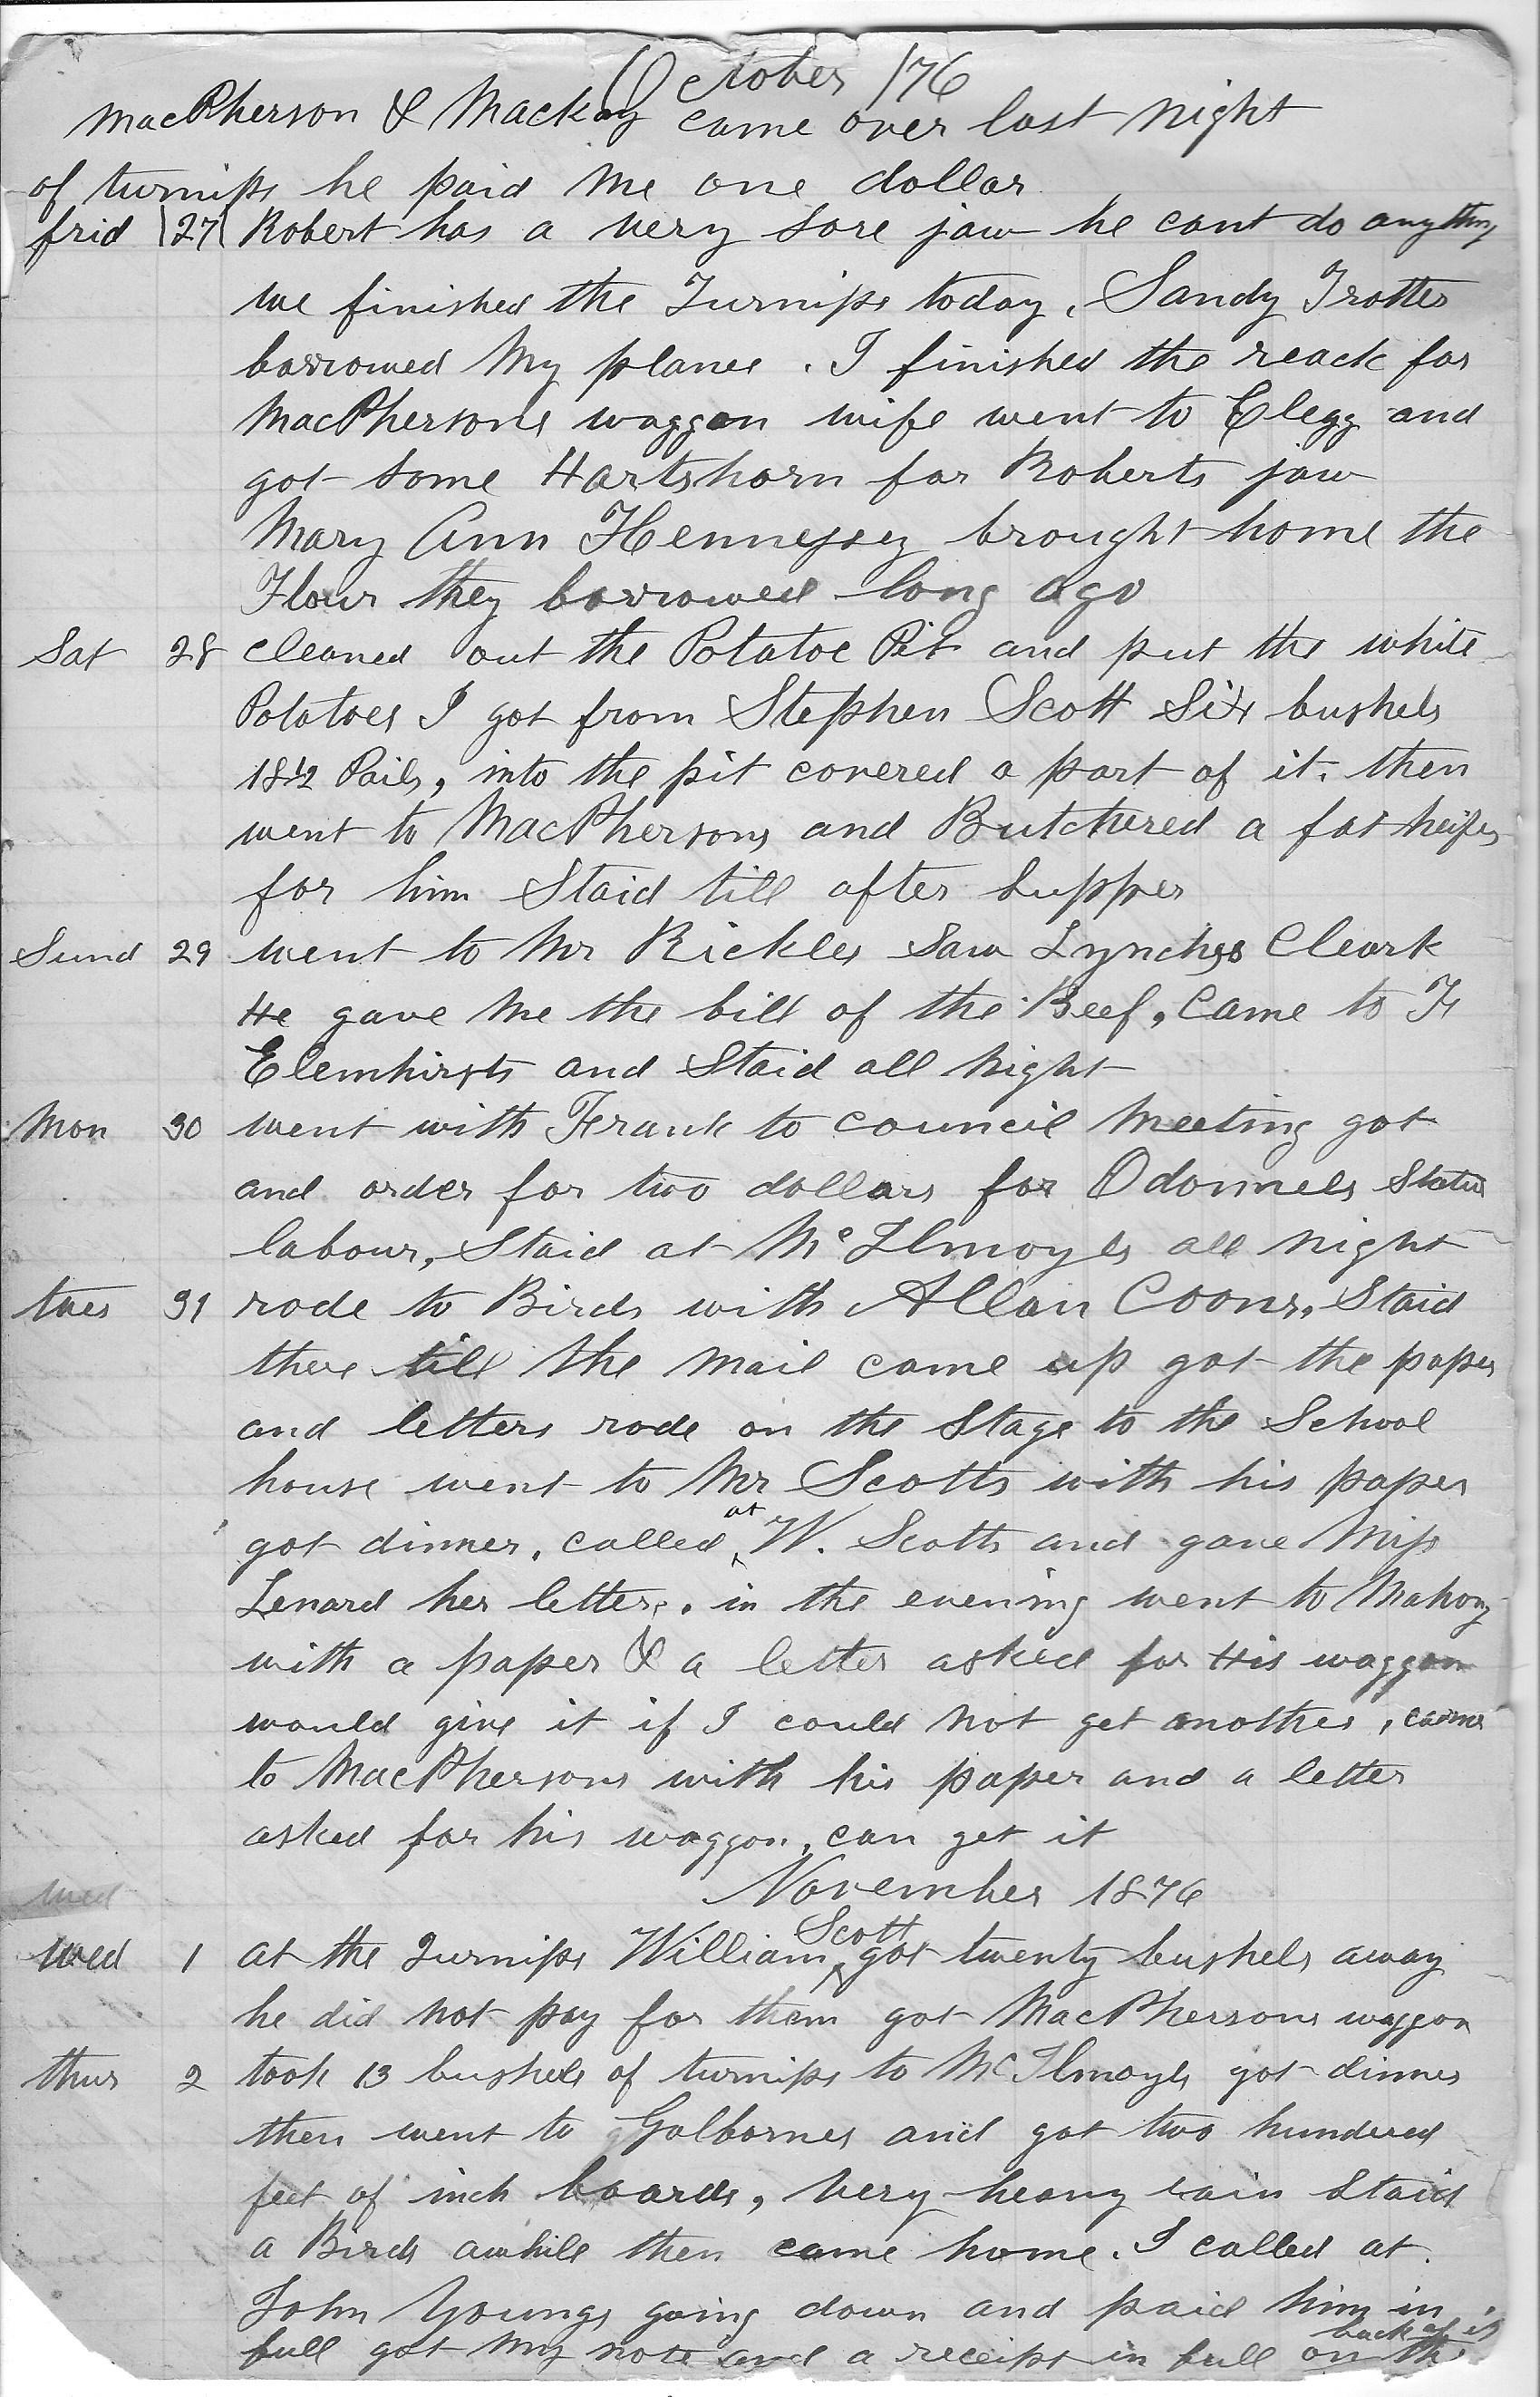 October /76
MacPherson & Mackay came over last night
of turnips he paid me one dollar
frid 27 Robert has a very sore jaw he cant do anything
we finished the Turnips today, Sandy Trotter
borrowed my planes. I finished the reack for
MacPhersons waggon wife went to Clegg and
got some Hartshorn for Roberts jaw
Mary Ann Hennessey brought home the
Flour they borrowed long ago
Sat 28 cleaned out the Potatoe Pit and put the white
Potatoes I got from Stephen Scott Six bushels
18½ Pails, into the pit covered a part of it. then
went to MacPhersons and Butchered a fat heifer
for him Staid till after supper
Sund 29 went to Mr Rickles Saw Lynches Cleark
He gave me the bill of the Beef, Came to F
Elemhirsts and Staid all night
Mon 30 went with Frank to council meeting got
and order for two dollars for Odonnels Statu
labour, Staid at McIlmoyls all night
tues 31 rode to Birds with Allan Coons, Staid
there till the mail came up got the paper
and letters rode on the Stage to the School
house went to Mr Scotts with his paper
got dinner, called at W. Scotts and gave Miss
Lenard her letter, in the evening went to Mahony
with a paper & a letter asked for His waggon
would give it if I could not get another, came
to MacPhersons with his paper and a letter
asked for his waggon, can get it
November 1876
wed
wed 1 at the Turnips William Scott got twenty bushels away
he did not pay for them got MacPhersons waggon
thur 2 took 13 bushels of turnips to McIlmoyls got dinner
then went to Golbornes and got two hundred
feet of inch boards, very heavy rain Staid
a Birds awhile then came home. I called at
John Youngs going down and paid him in
full got my note and a receipt in full on the back of it